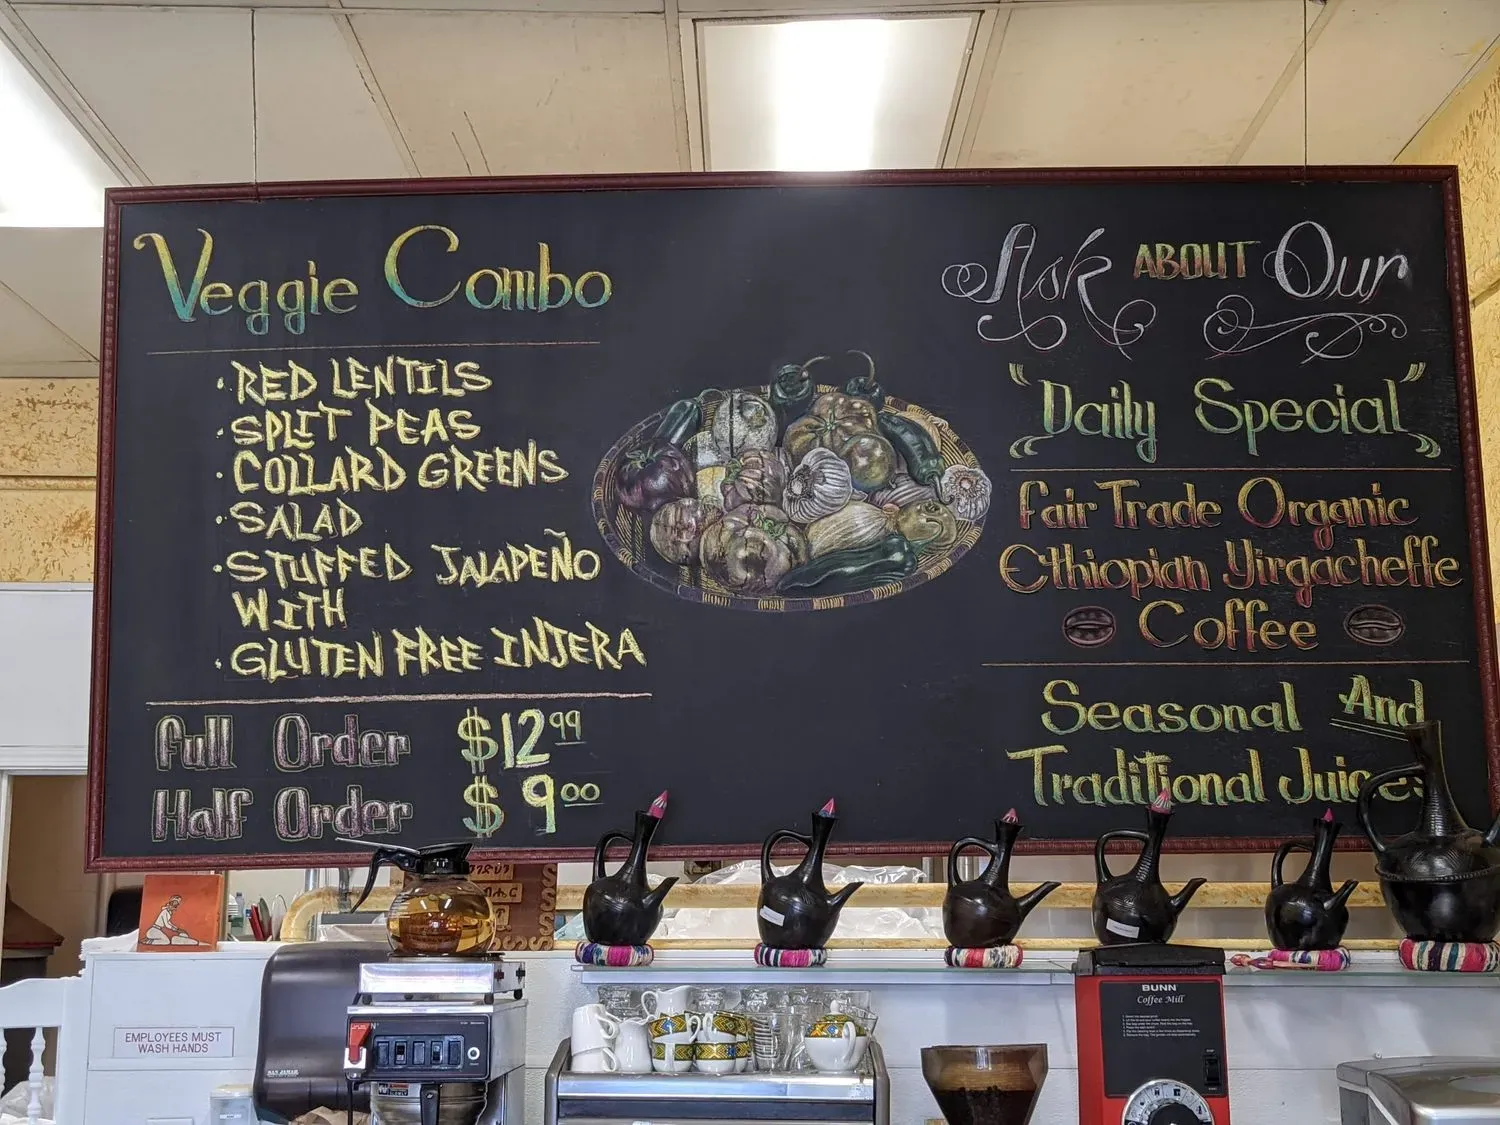 Veggie Combo
· RED LENTILS
· SPLIT PEAS
· COLLARD GREENS
· SALAD
· STUFFED JALAPEÑO
WITH
· GLUTEN FREE INJERA
Full Order $12.99
Half Order $9.00
Ask ABOUT Our
"Daily Special"
Fair Trade Organic
Ethiopian Yirgacheffe
Coffee
Seasonal And
Traditional Juices
EMPLOYEES MUST
WASH HANDS
SAN JAMAR
BUNN
Coffee Mill